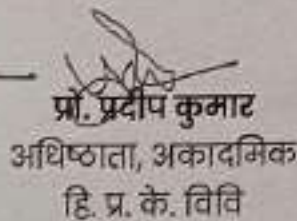 प्रो. प्रदीप कुमार
अधिष्ठाता, अकादमिक
हि. प्र. के. विवि